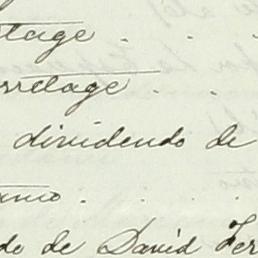 tage . . .
rretage . .
dividendo de
anno . . .
do de David Fer